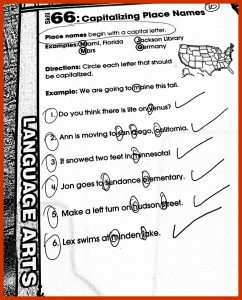 66: Capitalizing Place Names
Place names begin with a capital letter.
Examples: Miami, Florida Jackson Library
Mars Germany
Directions: Circle each letter that should
be capitalized.
Example: We are going to maine this fall.
1. Do you think there is life on venus?
2. Ann is moving to san diego, california.
3. It snowed two feet in minnesota!
4. Jon goes to sundance elementary.
5. Make a left turn on hudson street.
6. Lex swims at minden lake.
LANGUAGE ARTS